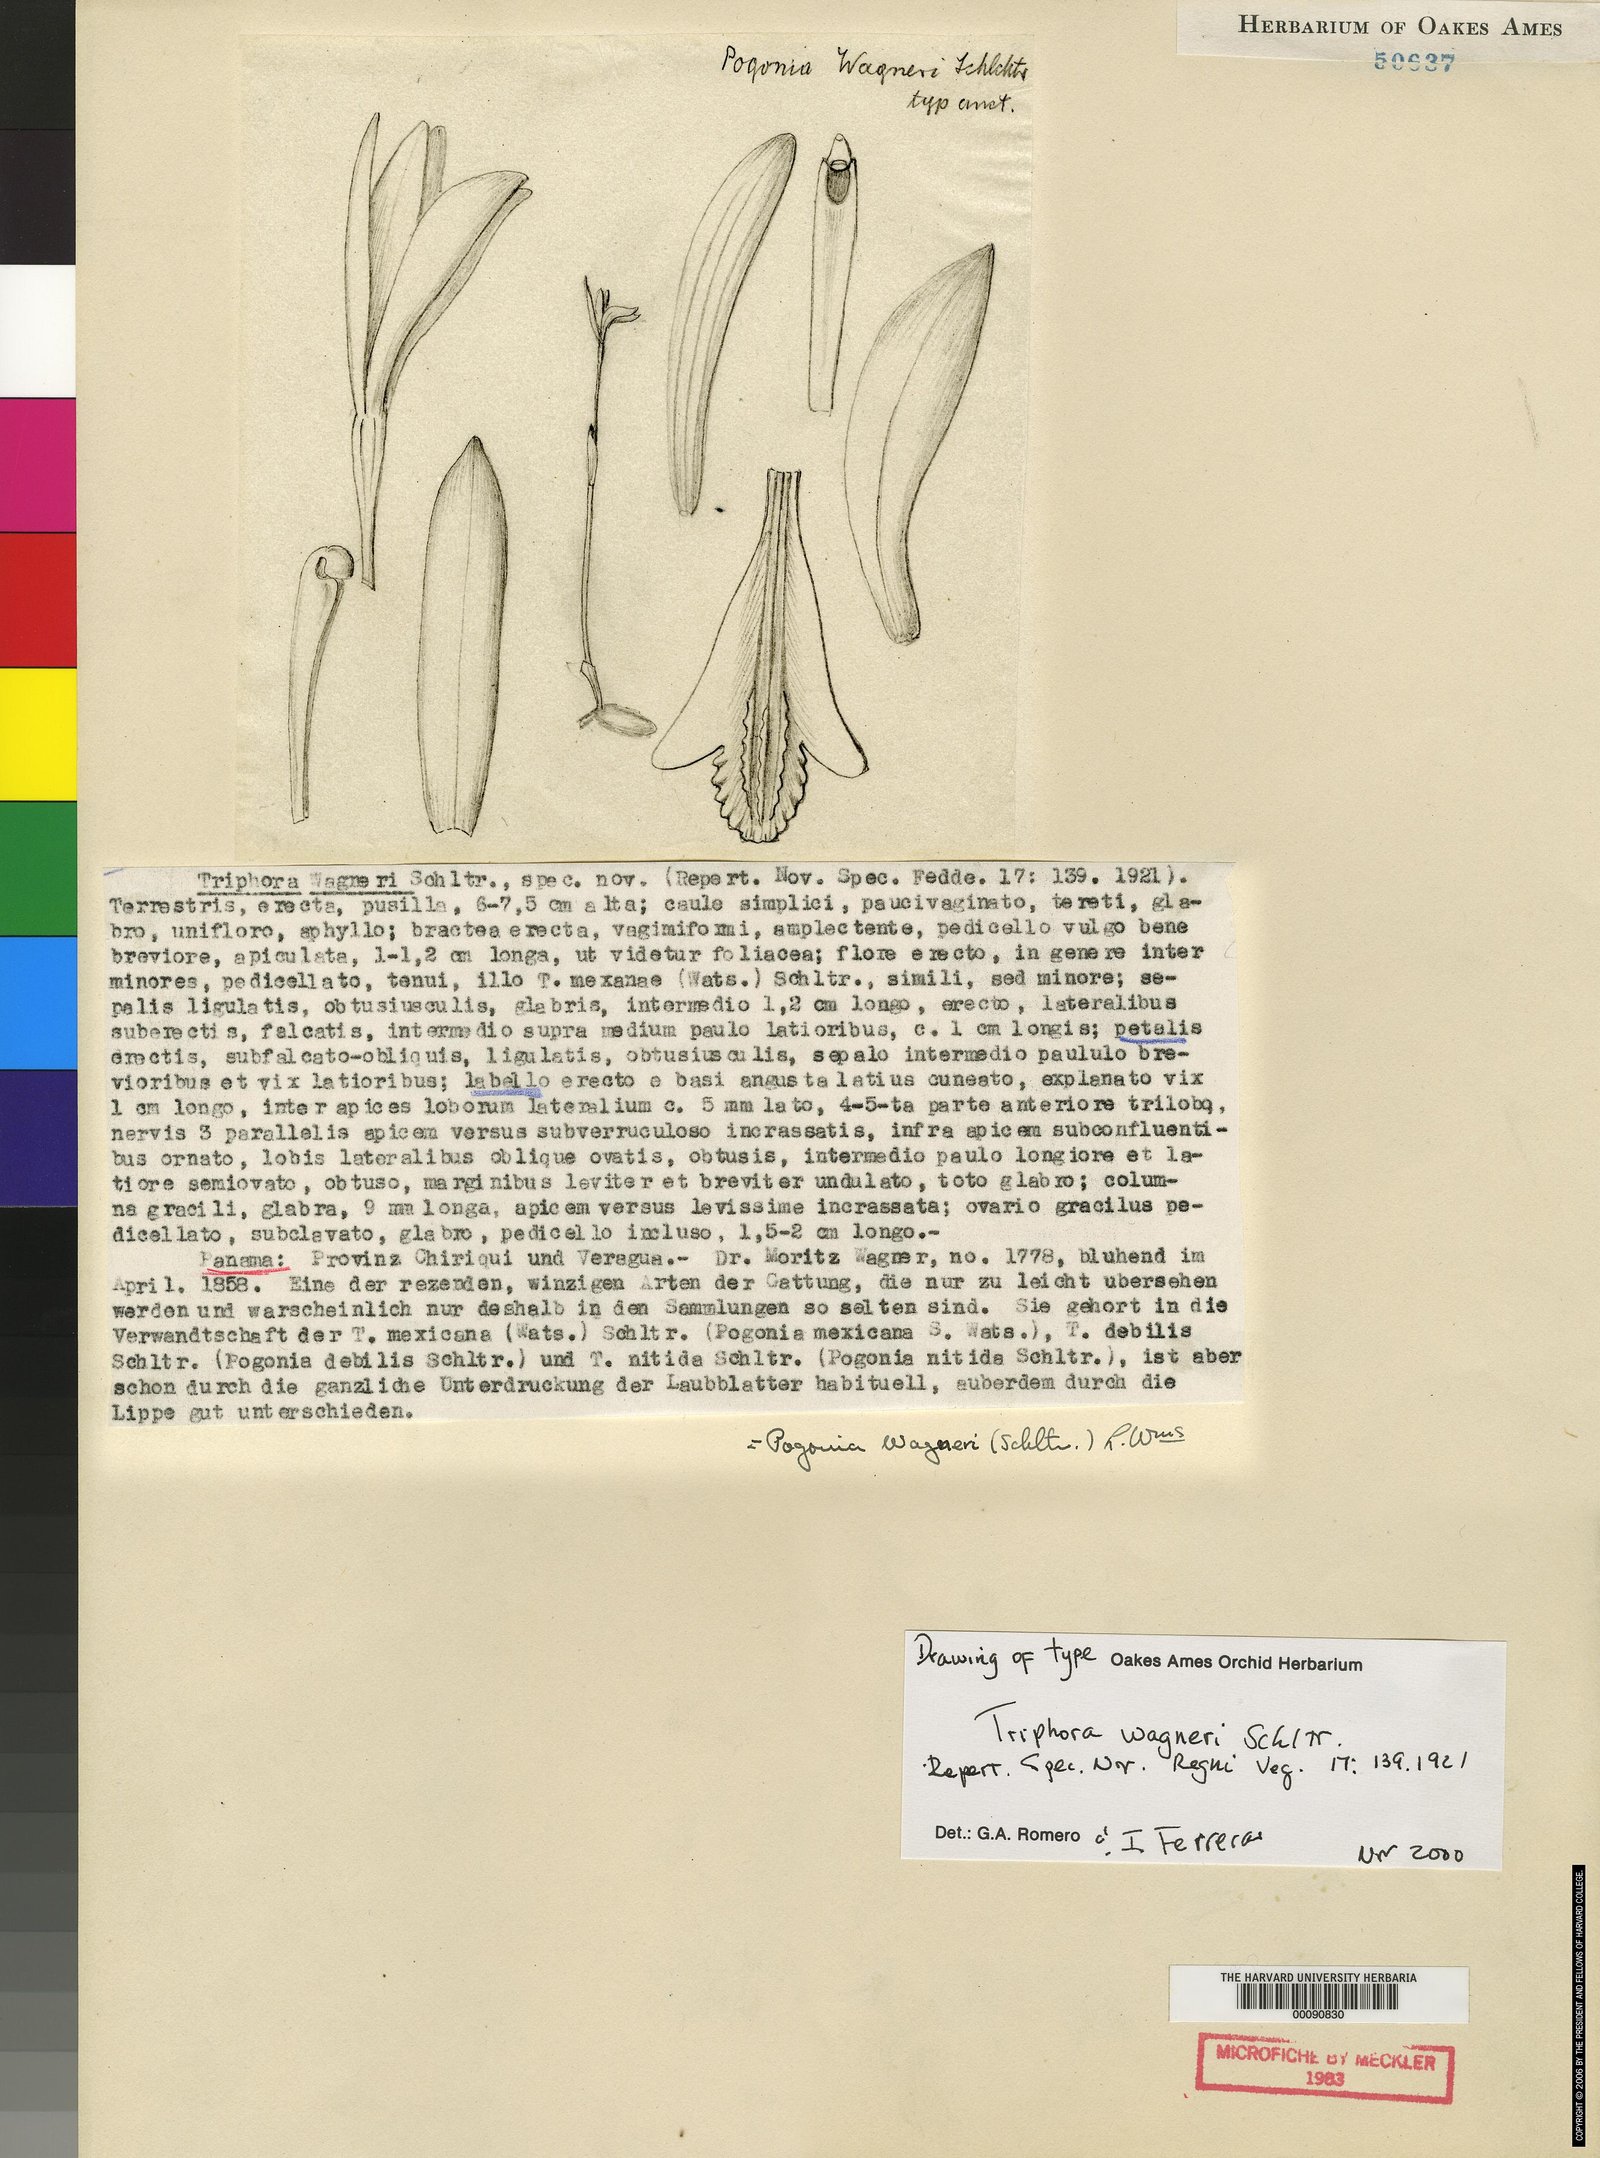 HERBARIUM OF OAKES AMES
50637
Pogonia Wagneri Schlchtr
typ
Triphora Wagneri Schltr., spec. nov. (Repert. Nov. Spec. Fedde. 17: 139. 1921).
Terrestris, erecta, pusilla, 6-7,5 cm alta; caule simplici, paucivaginato, tereti, gla-
bro, unifloro, aphyllo; bractea erecta, vagimiformi, amplectente, pedicello vulgo bene
breviore, apiculata, 1-1,2 cm longa, ut videtur foliacea; flore erecto, in genere inter
minores, pedicellato, tenui, illo T. mexanae (Wats.) Schltr., simili, sed minore; se-
palis ligulatis, obtusiusculis, glabris, intermedio 1,2 cm longo, erecto, lateralibus
suberectis, falcatis, intermedio supra medium paulo latioribus, c. 1 cm longis; petalis
erectis, subfalcato-obliquis, ligulatis, obtusiusculis, sepalo intermedio paululo bre-
vioribus et vix latioribus; labello erecto e basi angusta latius cuneato, explanato vix
1 cm longo, inter apices loborum lateralium c. 5 mm lato, 4-5-ta parte anteriore trilobo,
nervis 3 parallelis apicem versus subverruculoso incrassatis, infra apicem subconfluenti-
bus ornato, lobis lateralibus oblique ovatis, obtusis, intermedio paulo longiore et la-
tiore semiovato, obtuso, marginibus leviter et breviter undulato, toto glabro; colum-
na gracili, glabra, 9 mm longa, apicem versus levissime incrassata; ovario gracilus pe-
dicellato, subclavato, glabro, pedicello incluso, 1,5-2 cm longo.-
Panama: Provinz Chiriqui und Veragua.- Dr. Moritz Wagner, no. 1778, bluhend im
April. 1858. Eine der rezenden, winzigen Arten der Gattung, die nur zu leicht ubersehen
werden und warscheinlich nur deshalb in den Sammlungen so selten sind. Sie gehort in die
Verwandtschaft der T. mexicana (Wats.) Schltr. (Pogonia mexicana S. Wats.), T. debilis
Schltr. (Pogonia debilis Schltr.) und T. nitida Schltr. (Pogonia nitida Schltr.), ist aber
schon durch die ganzliche Unterdruckung der Laubblatter habituell, auberdem durch die
Lippe gut unterschieden.
= Pogonia Wagneri (Schltr.) L. Wms
Drawing of type Oakes Ames Orchid Herbarium
Triphora wagneri Schltr.
Repert. Spec. Nov. Regni Veg. 17: 139. 1921
Det.: G.A. Romero & I Ferreras
Nov 2000
THE HARVARD UNIVERSITY HERBARIA
00090830
MICROFICHE BY MECKLER
1983
COPYRIGHT © 2006 BY THE PRESIDENT AND FELLOWS OF HARVARD COLLEGE.